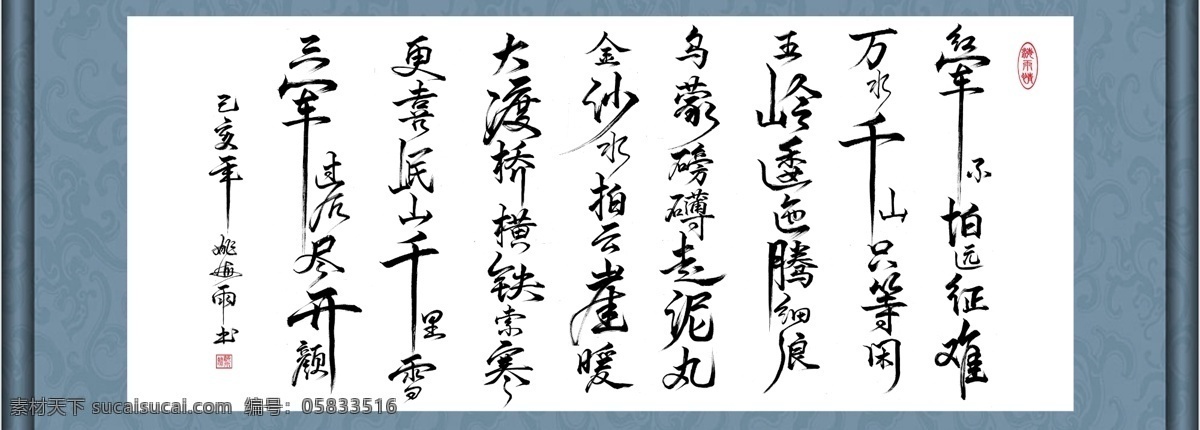 红军不怕远征难
万水千山只等闲
五岭逶迤腾细浪
乌蒙磅礴走泥丸
金沙水拍云崖暖
大渡桥横铁索寒
更喜岷山千里雪
三军过后尽开颜
己亥年 姚 雨书
素材天下 sucaisucai.com 编号：05833516